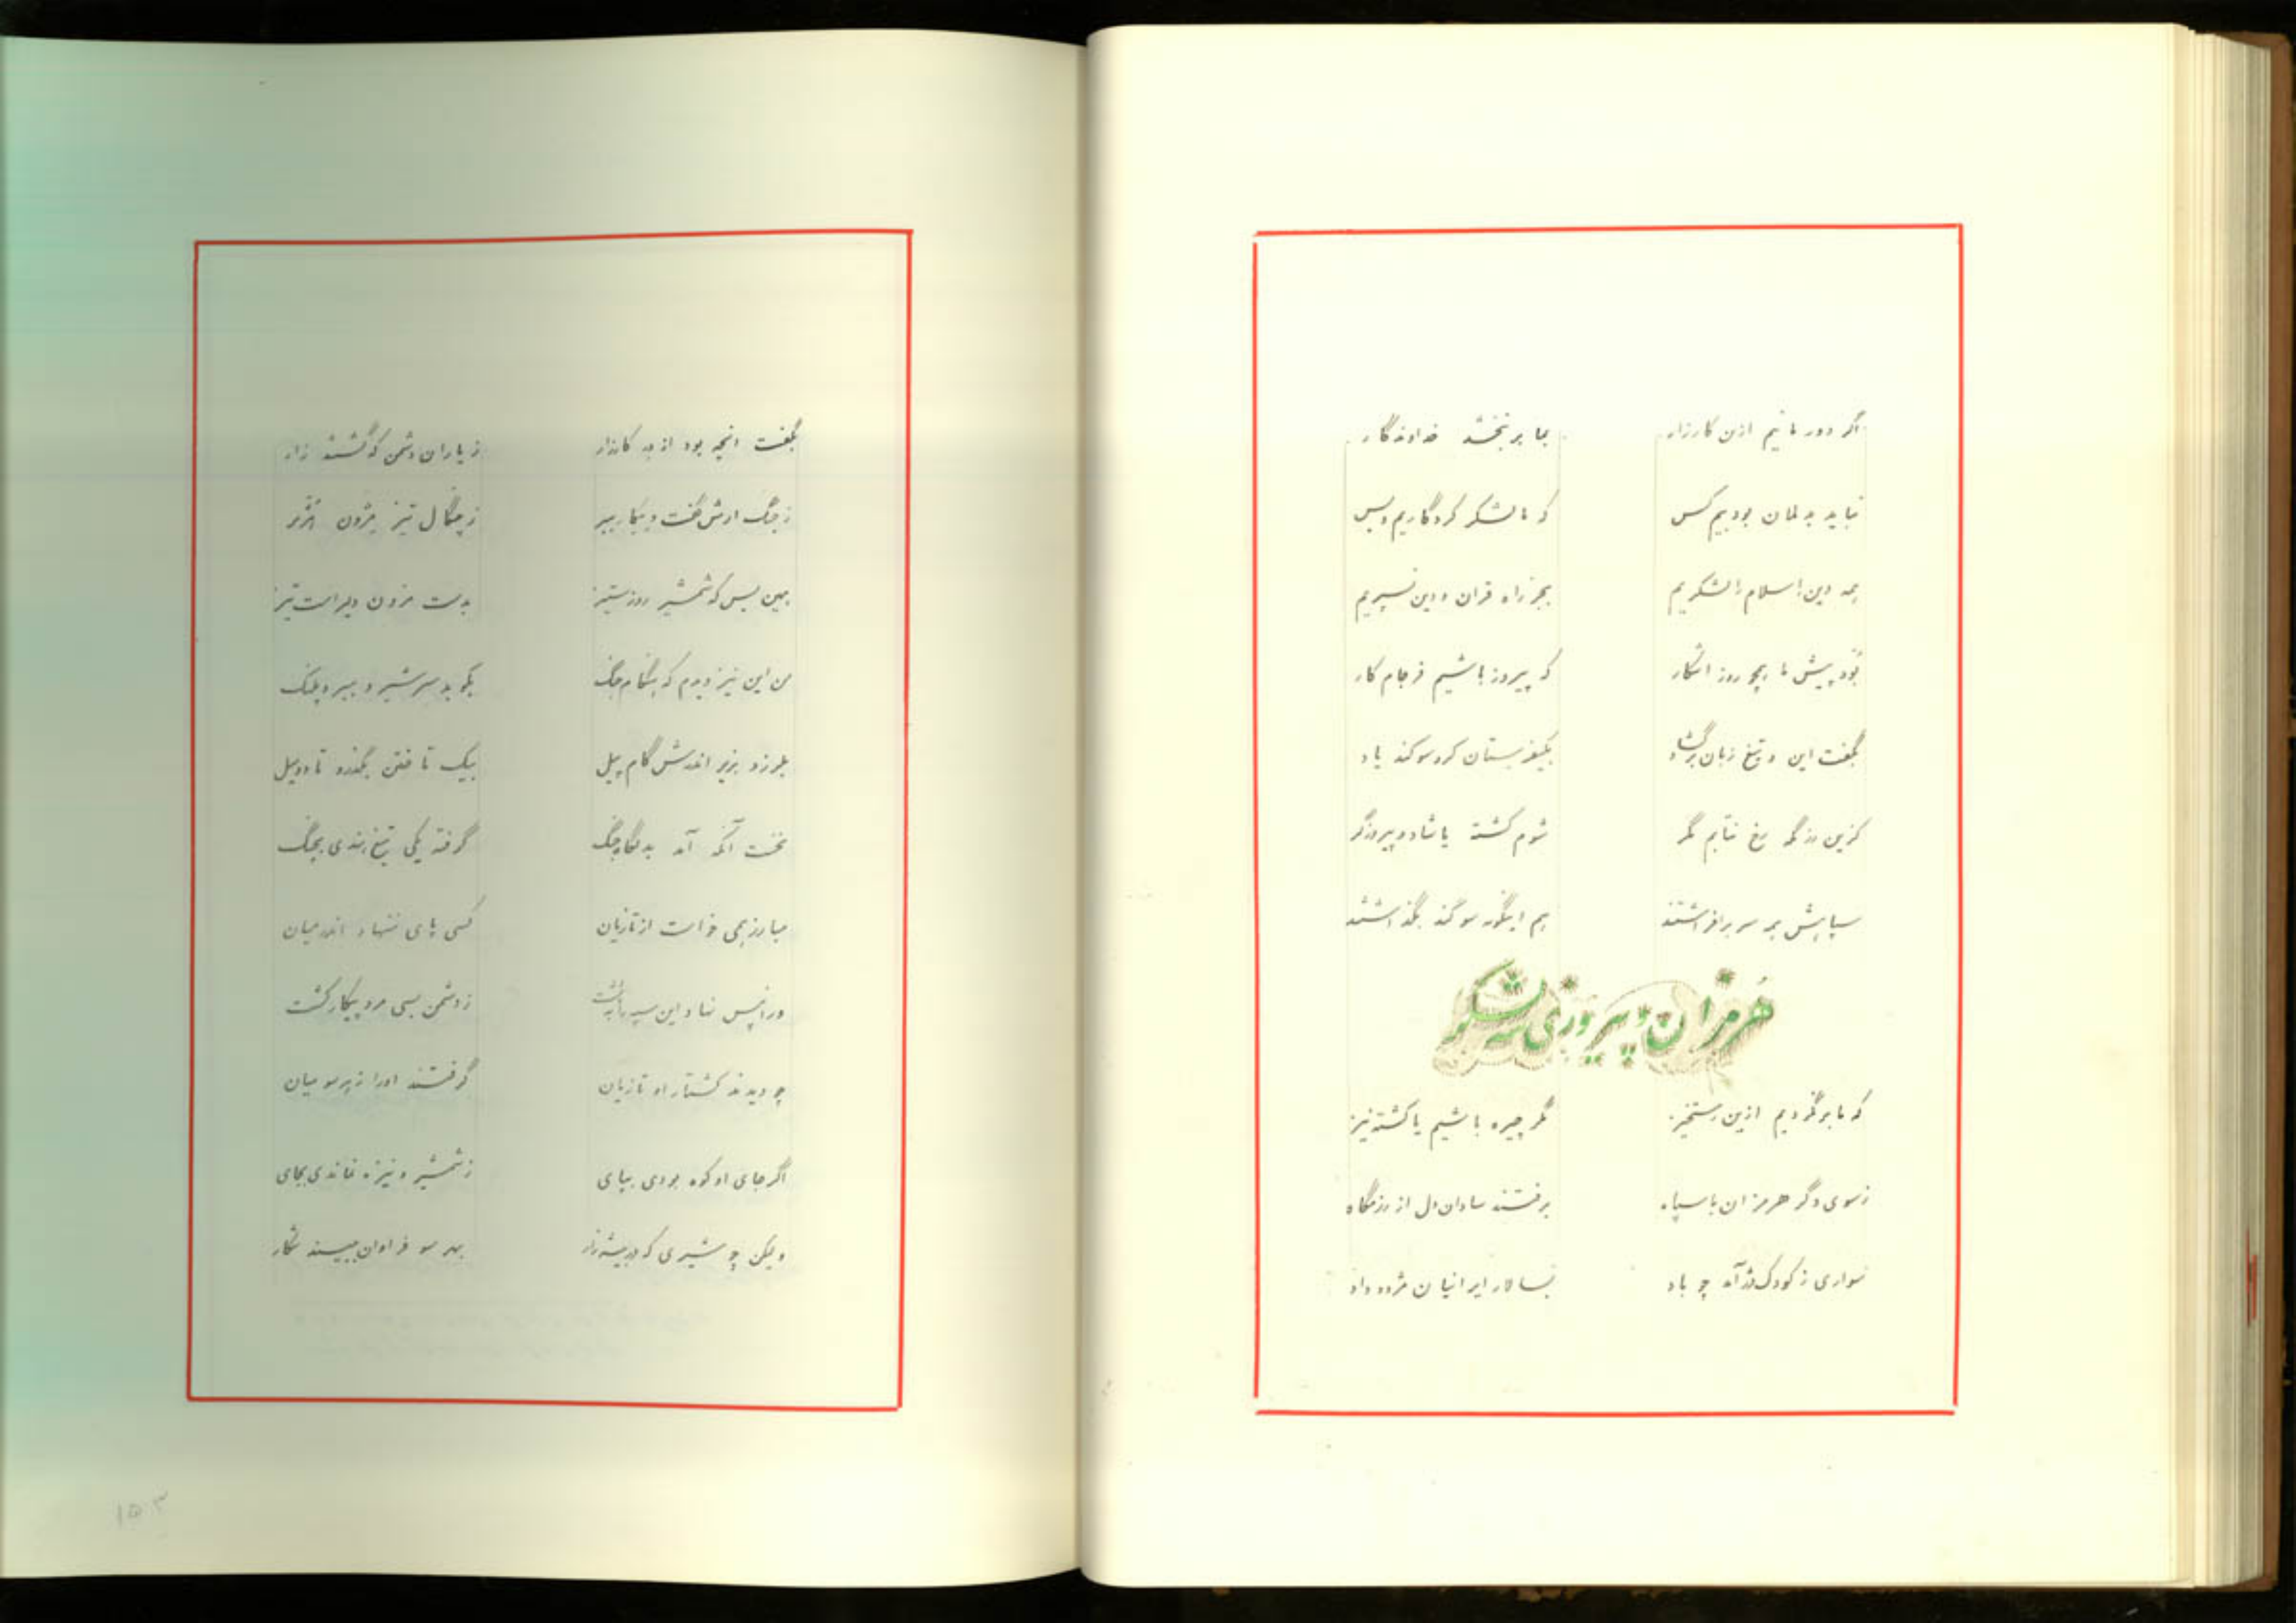 اگر دور مانیم ازین کارزار بما بر نبخشد خداوندگار
نباید بدلمان بود بیم کس که ما لشکر کردگاریم و بس
همه دین اسلام را لشکریم بجز راه قران و دین نسپریم
بود پیش ما همچو روز آشکار که پیروز باشیم فرجام کار
بگفت این و تیغ زبان برگشاد بکیفرستان کرد سوگند یاد
کزین رزمگه رخ نتابم مگر شوم کشته یا شاد و پیروزگر
سپاهش همه سر برافراشتند هم اینگونه سوگند بگذاشتند
هرمزان و پیروزی شه
که ما برنگردیم ازین رستخیز مگر چیره باشیم یا کشته نیز
ز سوی دگر هرمزان با سپاه برفتند شادان دل از رزمگاه
سواری ز کودک درآمد چو باد بسالار ایرانیان مژده داد
بگفت آنچه بود از بد کارزار ز یاران دشمن که گشتند زار
ز جنگ آورش گفت و پیکار ببر ز چنگال تیز هژبر
همین بس که شمشیر روز ستیز بدست دلیر است تیز
من این نیز دیدم که هنگام جنگ بکوبد سر شیر و ببر و پلنگ
بلرزد بزیر اندرش گام پیل بیک تافتن بگذرد تا دو میل
نخست آنگه آمد بدلگاه جنگ گرفته یکی تیغ هندی بچنگ
مبارز همی خواست از تازیان کسی پای ننهاد اندر میان
وزان پس نهاد این سپه را به پشت ز دشمن بسی مرد پیکار کشت
چو دیدند کشتار او تازیان گرفتند او را ز هر سو میان
اگر جای او کوه بودی بپای ز شمشیر و نیزه نماندی بجای
ولیکن چو شیری که در بیشه زار بهر سو فراوان ببیند شکار
۱۵۰۳